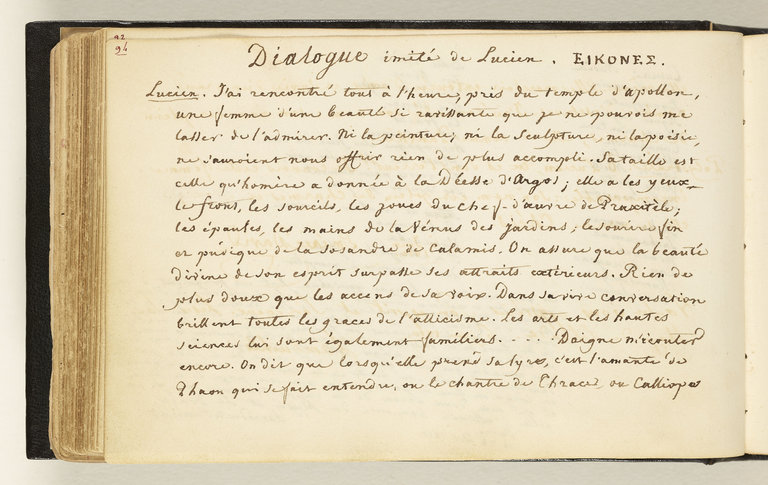 92
94
Dialogue imité de Lucien. ΕΙΚΟΝΕΣ.
Lucien. J'ai rencontré tout à l'heure, près du temple d'apollon,
une femme d'une beauté si ravissante que je ne pouvois me
lasser de l'admirer. Ni la peinture, ni la Sculpture, ni la poësie,
ne sauroient nous offrir rien de plus accompli. Sa taille est
celle qu'homère a donnée à la Déesse d'Argos; elle a les yeux,
le front, les sourcils, les joues du chef-d'œuvre de Praxitèle;
les épaules, les mains de la Vénus des jardins; le sourire fin
et pudique de la sosandre de Calamis. On assure que la beauté
divine de son esprit surpasse ses attraits extérieurs. Rien de
plus doux que les accens de sa voix. Dans sa vive conversation
brillent toutes les graces de l'atticisme. les arts et les hautes
sciences lui sont également familiers. . . . . Daigne m'écouter
encore. On dit que lorsqu'elle prend sa lyre, c'est l'amante de
Phaon qui se fait entendre, ou le chantre de Thrace, ou Calliope